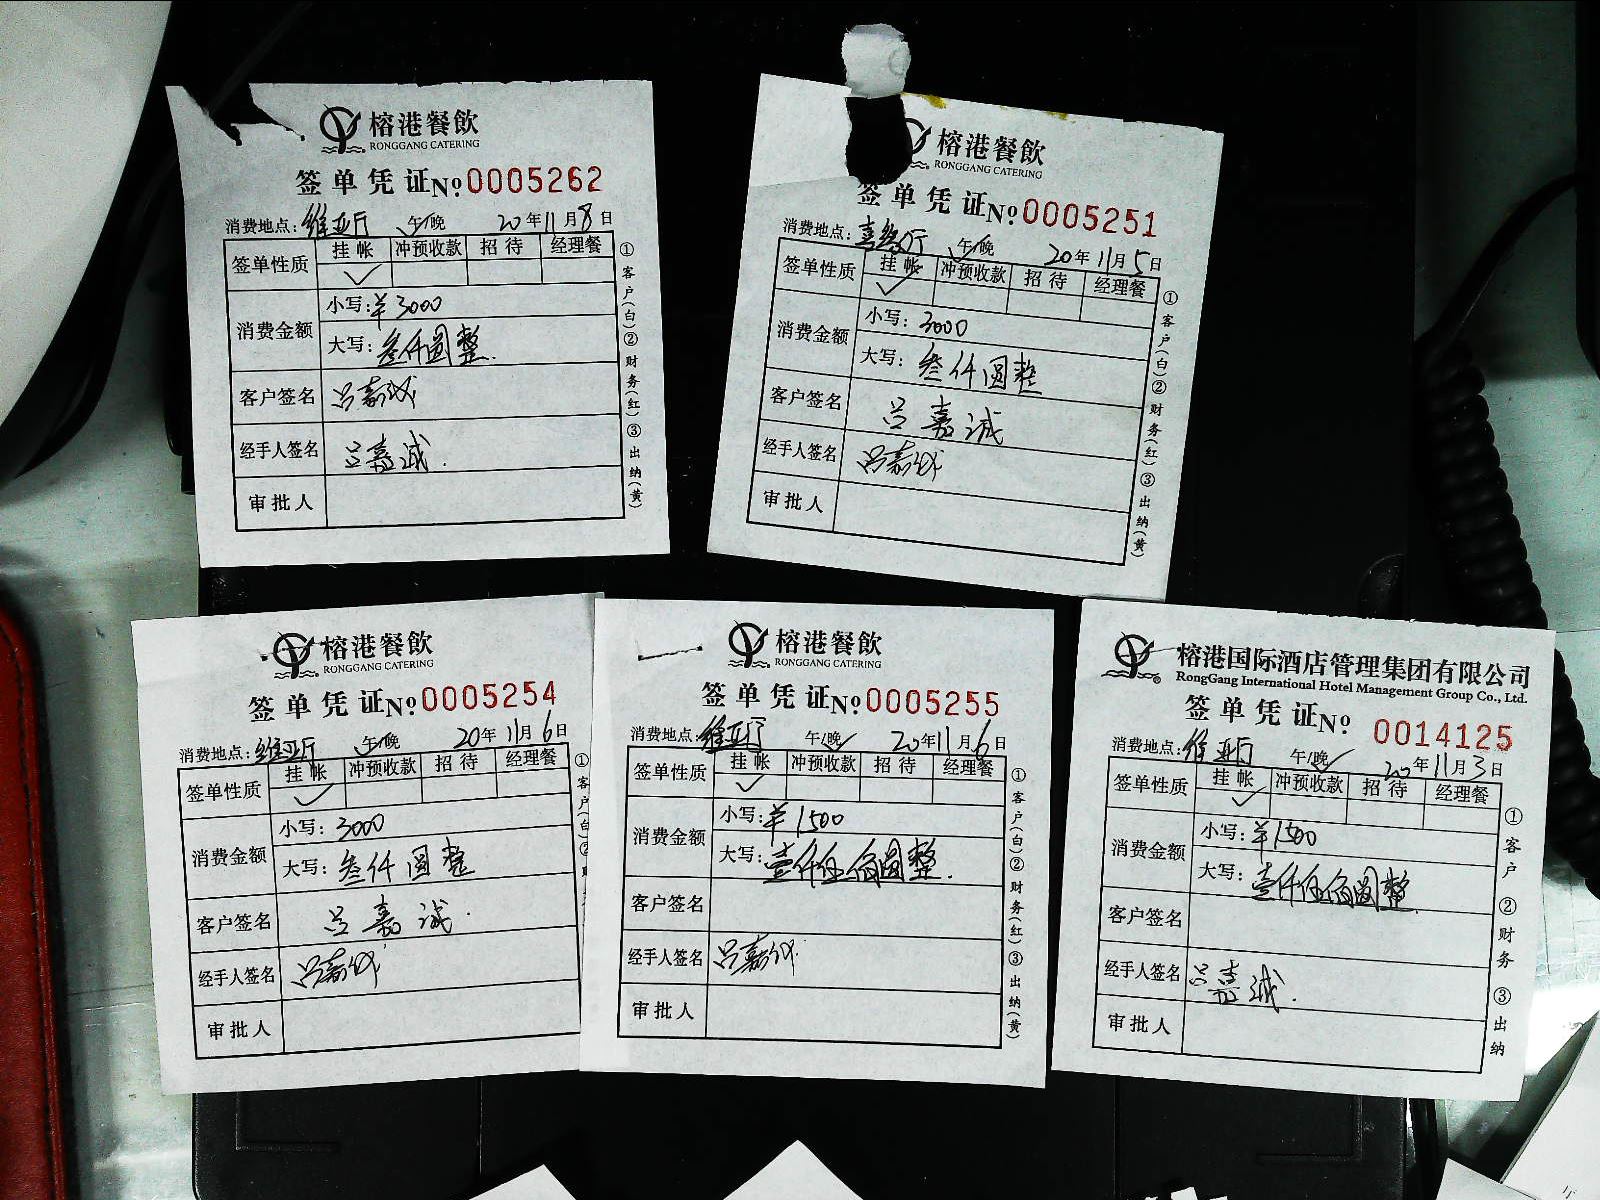 榕港餐飲
RONGGANG CATERING
签单凭证 No 0005262
消费地点: 维亚厅 午/晚 20年11月8日
签单性质 挂帐 冲预收款 招待 经理餐
✓
消费金额 小写:¥3000
大写: 叁仟圆整.
客户签名 吕嘉诚
经手人签名 吕嘉诚.
审批人
①客户(白)②财务(红)③出纳(黄)
榕港餐飲
RONGGANG CATERING
签单凭证 No 0005251
消费地点: 厅 午/晚 20年11月5日
签单性质 挂帐 冲预收款 招待 经理餐
✓
消费金额 小写: 3000
大写: 叁仟圆整
客户签名 吕嘉诚
经手人签名 吕嘉诚
审批人
①客户(白)②财务(红)③出纳(黄)
榕港餐飲
RONGGANG CATERING
签单凭证 No 0005254
消费地点: 维亚厅 午/晚 20年11月6日
签单性质 挂帐 冲预收款 招待 经理餐
✓
消费金额 小写: 3000
大写: 叁仟圆整
客户签名 吕嘉诚.
经手人签名 吕嘉诚
审批人
①客户(白)②财
榕港餐飲
RONGGANG CATERING
签单凭证 No 0005255
消费地点: 维亚厅 午/晚 20年11月6日
签单性质 挂帐 冲预收款 招待 经理餐
✓
消费金额 小写:¥1500
大写: 壹仟伍佰圆整.
客户签名
经手人签名 吕嘉诚
审批人
①客户(白)②财务(红)③出纳(黄)
榕港国际酒店管理集团有限公司
RongGang International Hotel Management Group Co., Ltd.
签单凭证 No 0014125
消费地点: 维亚厅 午/晚 20年11月3日
签单性质 挂帐 冲预收款 招待 经理餐
✓
消费金额 小写:¥1500
大写: 壹仟伍佰圆整.
客户签名
经手人签名 吕嘉诚.
审批人
①客户 ②财务 ③出纳